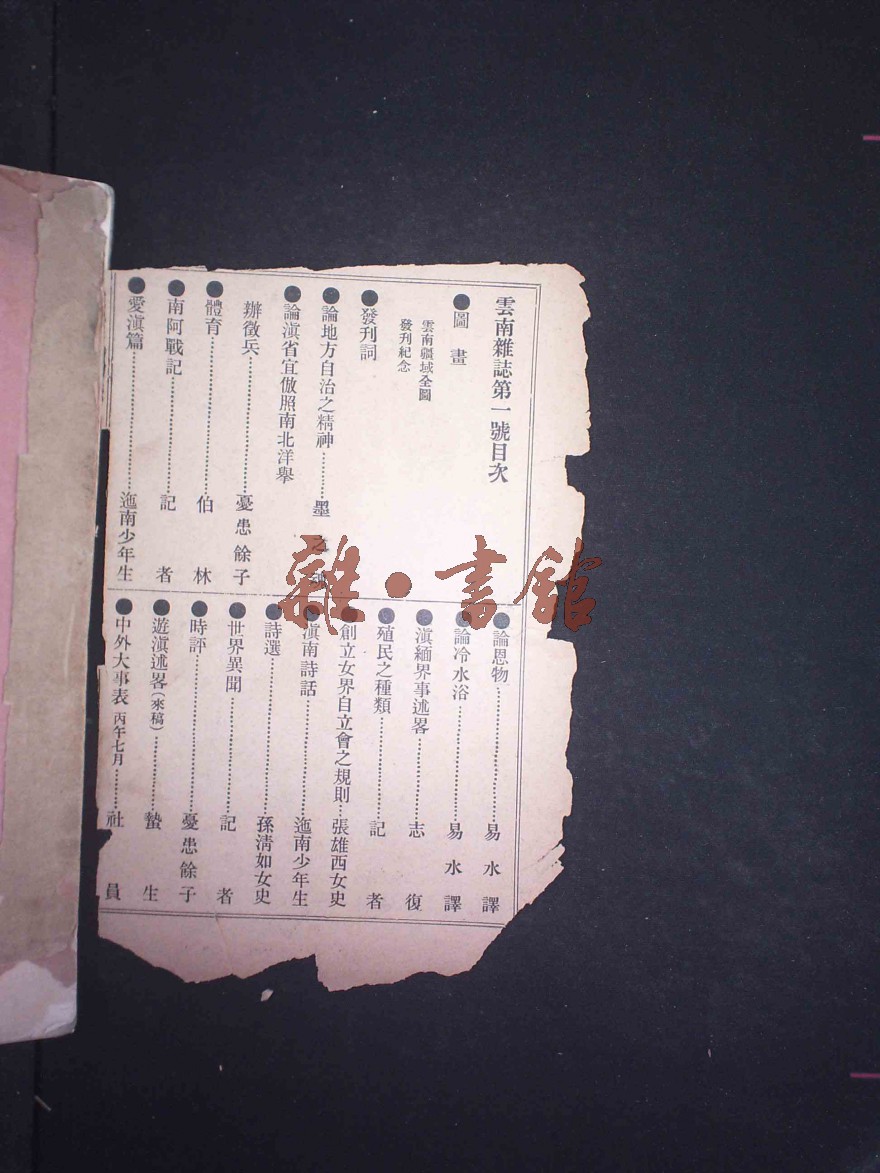 雲南雜誌第一號目次
●圖畫
雲南疆域全圖
發刊紀念
●發刊詞
●論地方自治之精神………墨之
●論滇省宜倣照南北洋舉
辦徵兵………憂患餘子
●體育………伯林
●南阿戰記………記者
●愛滇篇………迤南少年生
●論恩物………易水譯
●論冷水浴………易水譯
●滇緬界事述畧………志復
●殖民之種類………記者
●創立女界自立會之規則…張雄西女史
●滇南詩話………迤南少年生
●詩選………孫清如女史
●世界異聞………記者
●時評………憂患餘子
●遊滇述畧(來稿)………蟄生
●中外大事表 丙午七月………社員
雜·書館